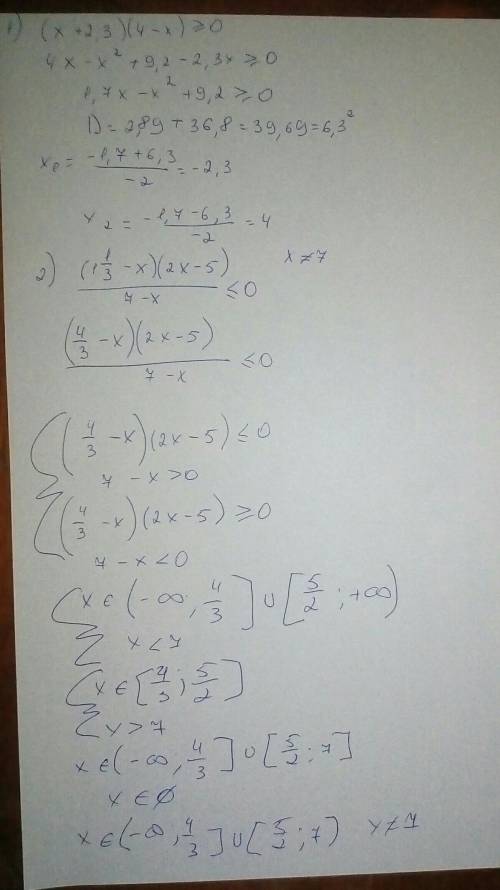 1) (x+2,3)(4-x)≥0
4x-x²+9,2-2,3x≥0
1,7x-x²+9,2≥0
D=2,89+36,8=39,69=6,3²
x₁= (-1,7+6,3)/(-2) =-2,3
x₂= (-1,7-6,3)/(-2) =4
2) ((1 1/3 -x)(2x-5))/(7-x) ≤0 x≠7
((4/3 -x)(2x-5))/(7-x) ≤0
{ (4/3 -x)(2x-5)≤0
7-x>0
{ (4/3 -x)(2x-5)≥0
7-x<0
{ x∈(-∞, 4/3]∪[5/2; +∞)
x<7
{ x∈[4/3; 5/2]
x>7
x∈(-∞, 4/3]∪[5/2; 7]
x∈∅
x∈(-∞, 4/3]∪[5/2; 7) x≠7